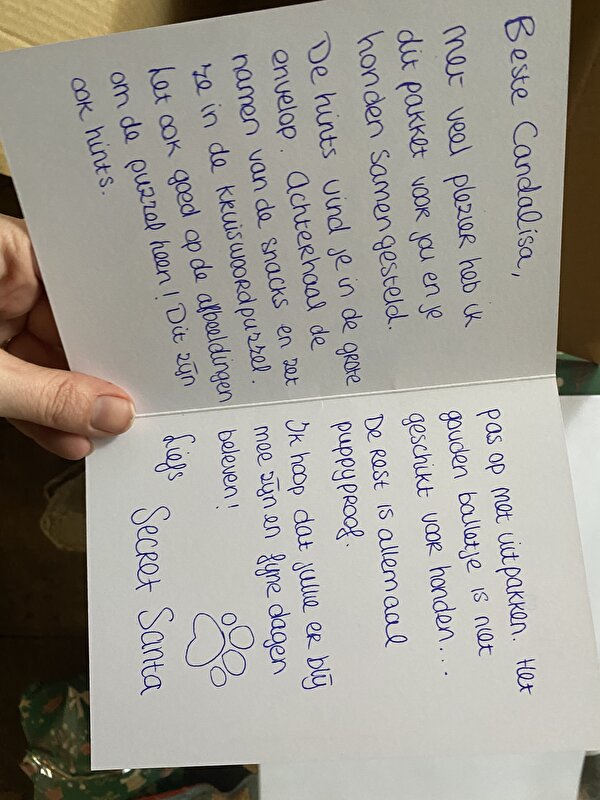 Beste Candalisa,
Met veel plezier heb ik
dit pakket voor jou en je
honden samengesteld.
De hints vind je in de grote
envelop. Achterhaal de
namen van de snacks en zet
ze in de kruiswoordpuzzel.
Let ook goed op de afbeeldingen
om de puzzel heen! Dit zijn
ook hints.
pas op met uitpakken. Het
gouden balletje is niet
geschikt voor honden....
De rest is allemaal
puppyproof.
Ik hoop dat jullie er blij
mee zijn en fijne dagen
beleven!
Liefs
Secret Santa